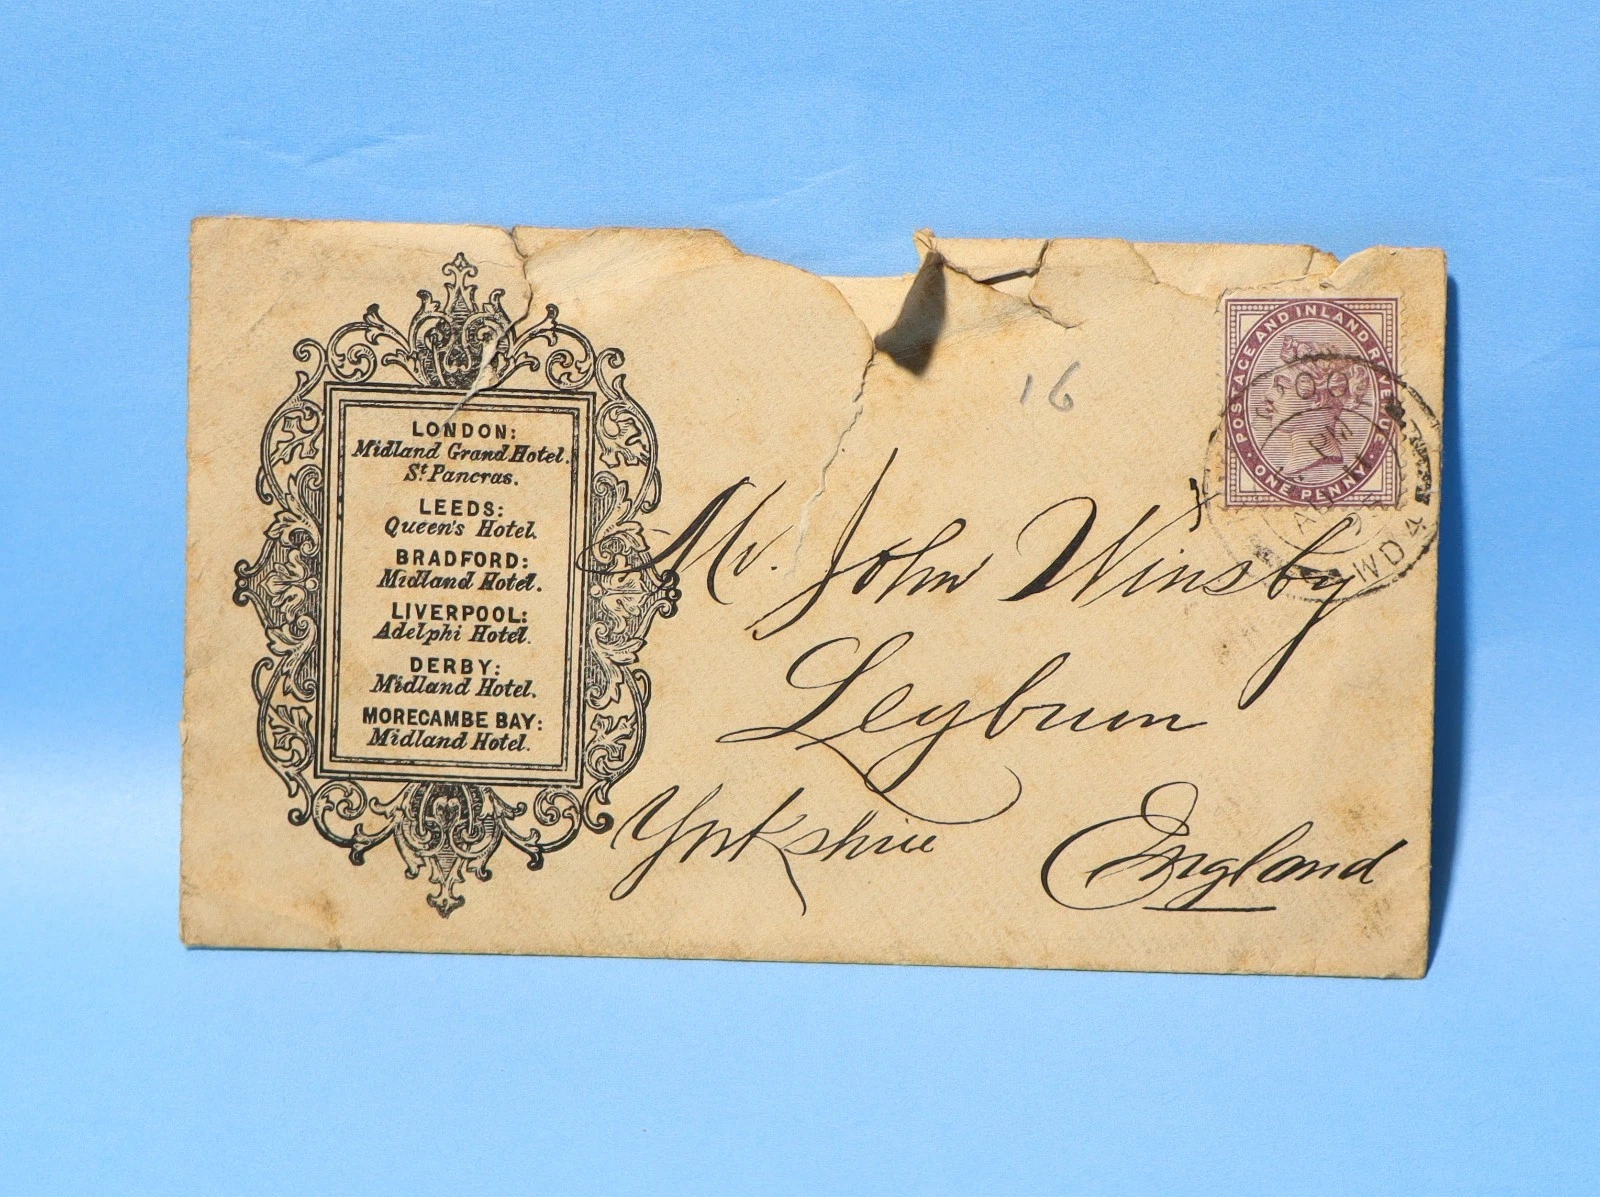 LONDON:
Midland Grand Hotel.
St Pancras.
LEEDS:
Queen's Hotel.
BRADFORD:
Midland Hotel.
LIVERPOOL:
Adelphi Hotel.
DERBY:
Midland Hotel.
MORECAMBE BAY:
Midland Hotel.
16
POSTAGE AND INLAND REVENUE
ONE PENNY
WD4
Mr. John Winsby
Leyburn
Yorkshire England